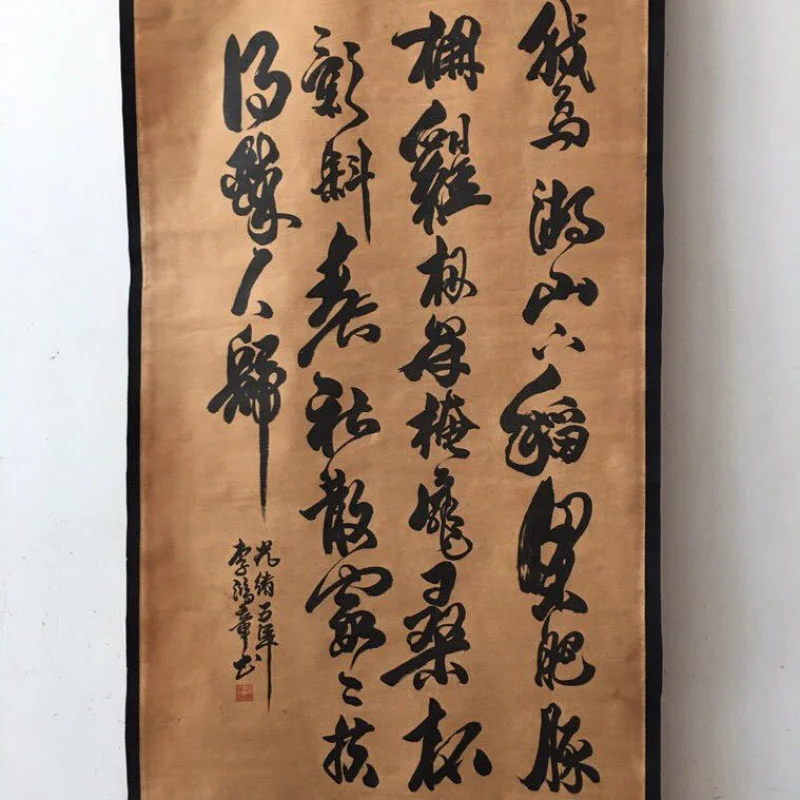 鵝湖山下稻粱肥豚
柵雞栖半掩扉桑柘
影斜春社散家々扶
得醉人歸
光緒五年
李鴻章书